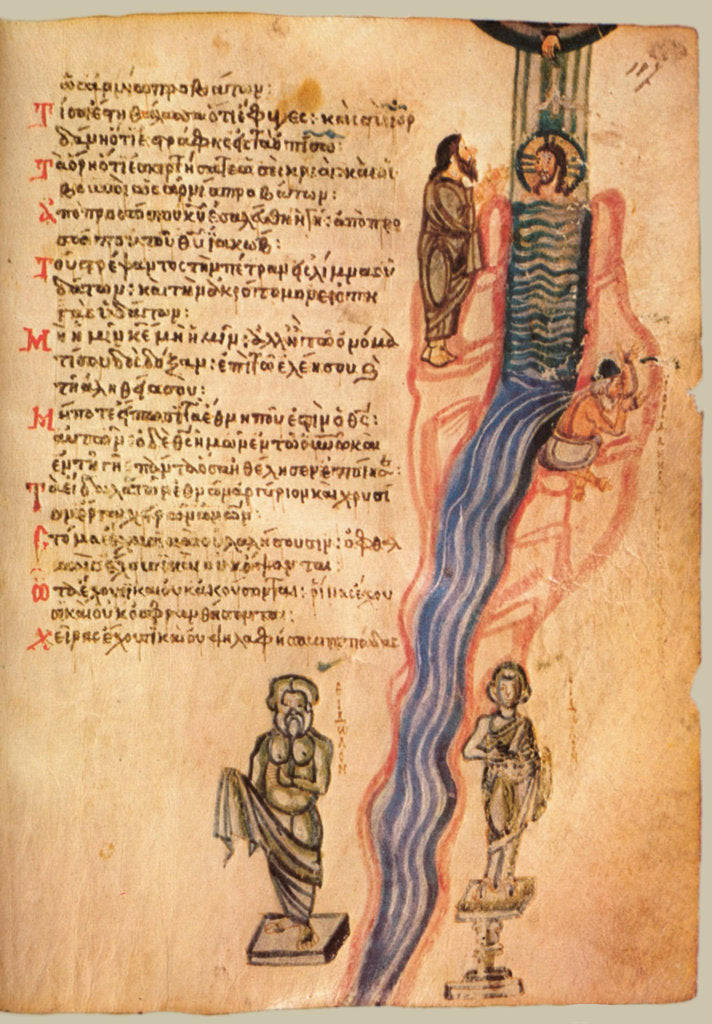 ὡς ἀρνία προβάτων:
Τί σοι ἐστι θάλασσα ὅτι ἔφυγες: καὶ σοὶ ἰορ
δάνη ὅτι ἐστράφης εἰς τὰ ὀπίσω:
Τὰ ὄρη ὅτι ἐσκιρτήσατε ὡσεὶ κριοί: καὶ οἱ
βουνοὶ ὡς ἀρνία προβάτων:
Ἀπὸ προσώπου κυ ἐσαλεύθη ἡ γῆ: ἀπὸ προ
σώπου τοῦ θυ ἰακώβ:
Τοῦ στρέψαντος τὴν πέτραν εἰς λίμνας ὑ
δάτων: καὶ τὴν ἀκρότομον εἰς πη
γὰς ὑδάτων:
Μὴ ἡμῖν κε μὴ ἡμῖν: ἀλλ ἢ τῷ ὀνόμα
τί σου δὸς δόξαν: ἐπὶ τῷ ἐλέει σου ϗ
τῇ ἀληθείᾳ σου:
Μήποτε εἴπωσι τὰ ἔθνη ποῦ ἐστιν ὁ θς:
αὐτῶν: ὁ δὲ θς ἡμῶν ἐν τῷ οὐνῷ καὶ
ἐν τῇ γῇ: πάντα ὅσα ἠθέλησεν ἐποίησ:
Τὰ εἴδωλα τῶν ἐθνῶν ἀργύριον καὶ χρυσί
ον ἔργα χειρῶν ἀνων:
Στόμα ἔχουσι καὶ οὐ λαλήσουσιν: ὀφθαλ
μοὺς ἔχουσι καὶ οὐκ ὄψονται:
Ὦτα ἔχουσι καὶ οὐκ ἀκούσονται: ῥῖνας ἔχου
σι καὶ οὐκ ὀσφρανθήσονται:
Χεῖρας ἔχουσι καὶ οὐ ψηλαφήσουσιν: πόδας
ΕΙΔΩΛΟΝ